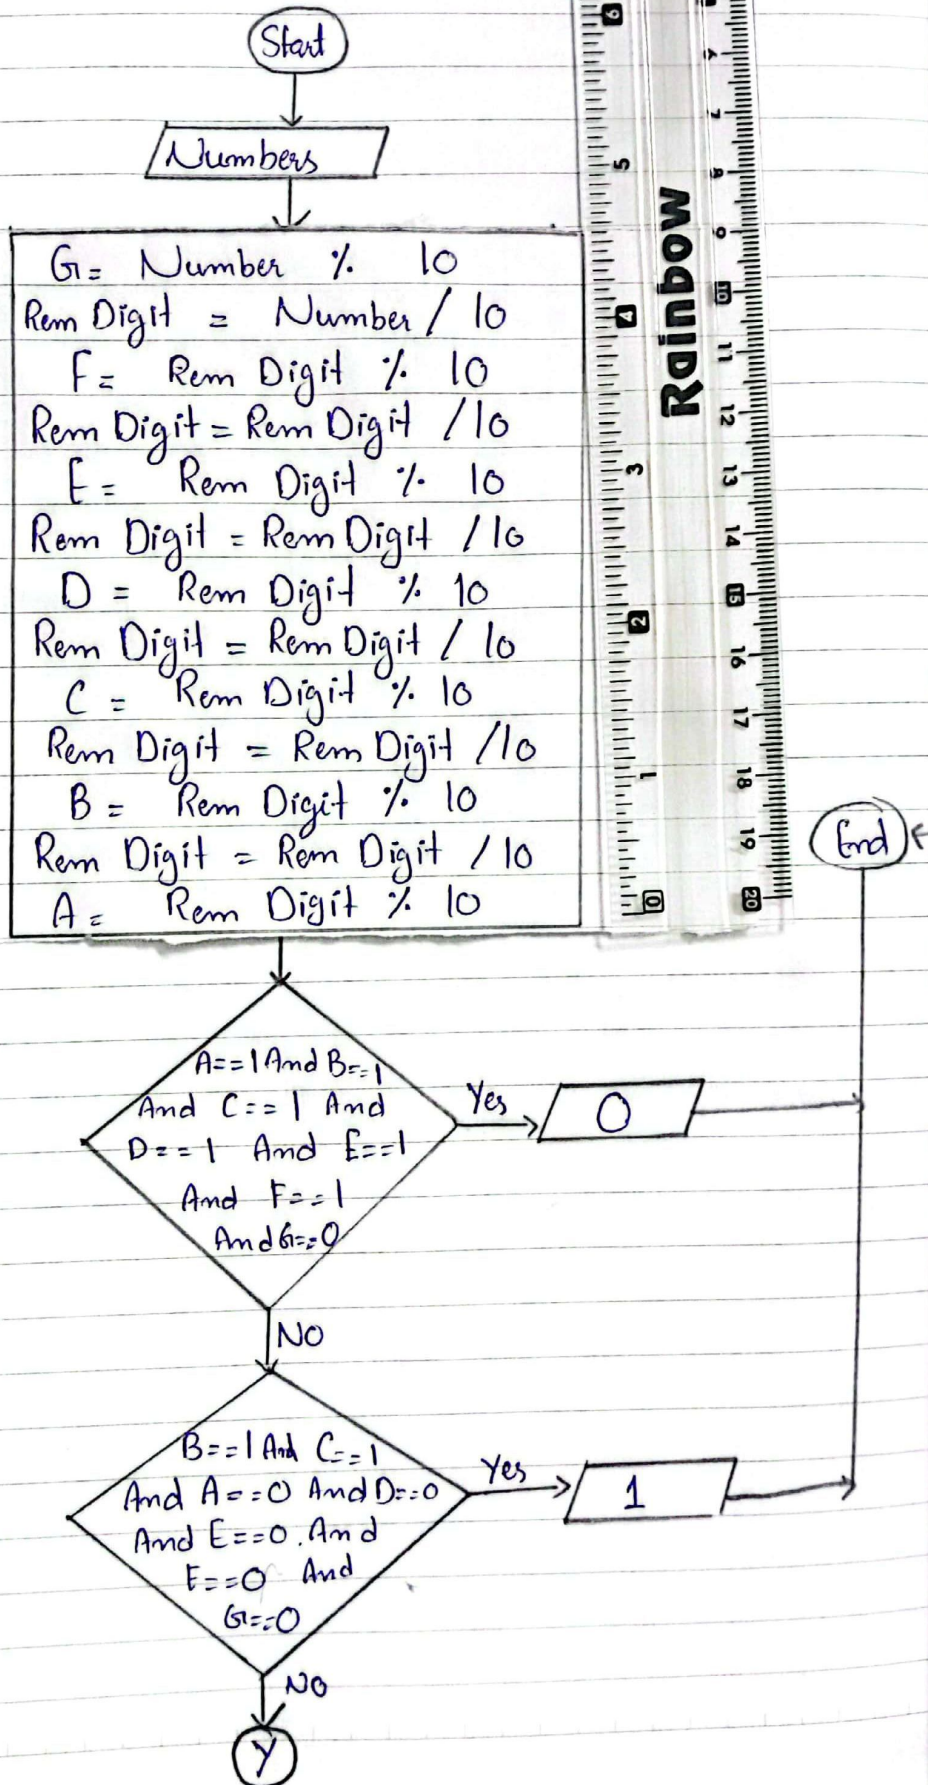 Start
Numbers
G= Number % 10
Rem Digit = Number / 10
F= Rem Digit % 10
Rem Digit = Rem Digit / 10
E= Rem Digit % 10
Rem Digit = Rem Digit / 10
D= Rem Digit % 10
Rem Digit = Rem Digit / 10
C= Rem Digit % 10
Rem Digit = Rem Digit / 10
B= Rem Digit % 10
Rem Digit = Rem Digit / 10
A= Rem Digit % 10
Rainbow
6
5
4
3
2
1
0
6
7
8
9
10
11
12
13
14
15
16
17
18
19
20
End
A==1 And B==1
And C==1 And
D==1 And E==1
And F==1
And G==0
Yes
0
NO
B==1 And C==1
And A==0 And D==0
And E==0. And
E==0 And
G==0
Yes
1
NO
Y